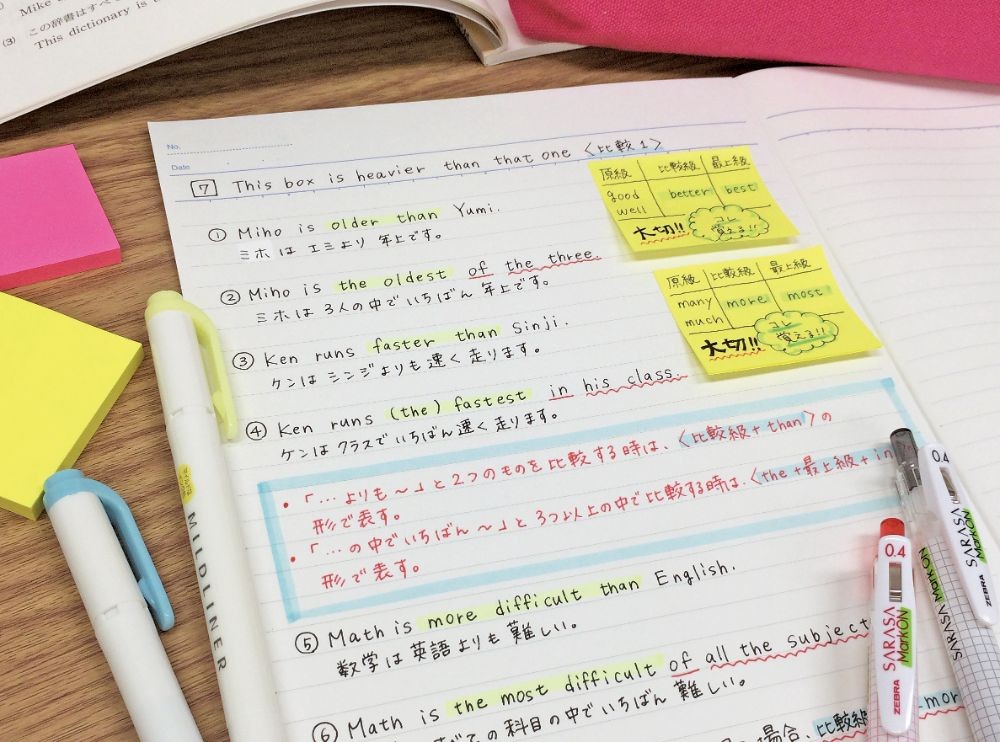 Mike
(3) この辞書はすべ
This dictionary is t
No.
Date
7 This box is heavier than that one 〈比較1〉
① Miho is older than Yumi.
ミホは エミより 年上です。
② Miho is the oldest of the three.
ミホは 3人の中でいちばん 年上です。
③ Ken runs faster than Sinji.
ケンは シンジよりも 速く 走ります。
④ Ken runs (the) fastest in his class.
ケンは クラスでいちばん 速く 走ります。
原級 比較級 最上級
good better best
well
大切!! コレ
覚える!!
原級 比較級 最上級
many more most
much
大切!! コレ
覚える!!
・「…よりも〜」と2つのものを比較する時は、〈比較級+than〉の
形で表す。
・「…の中でいちばん〜」と3つ以上の中で比較する時は、〈the+最上級+in
形で表す。
⑤ Math is more difficult than English.
数学は 英語よりも 難しい。
⑥ Math is the most difficult of all the subject
すべての 科目の中でいちばん 難しい。
場合、比較級
mor
MILDLINER
0.4
SARASA
MarkON
ZEBRA
0.4
SARASA
MarkON
ZEBRA
SARASA MarkON